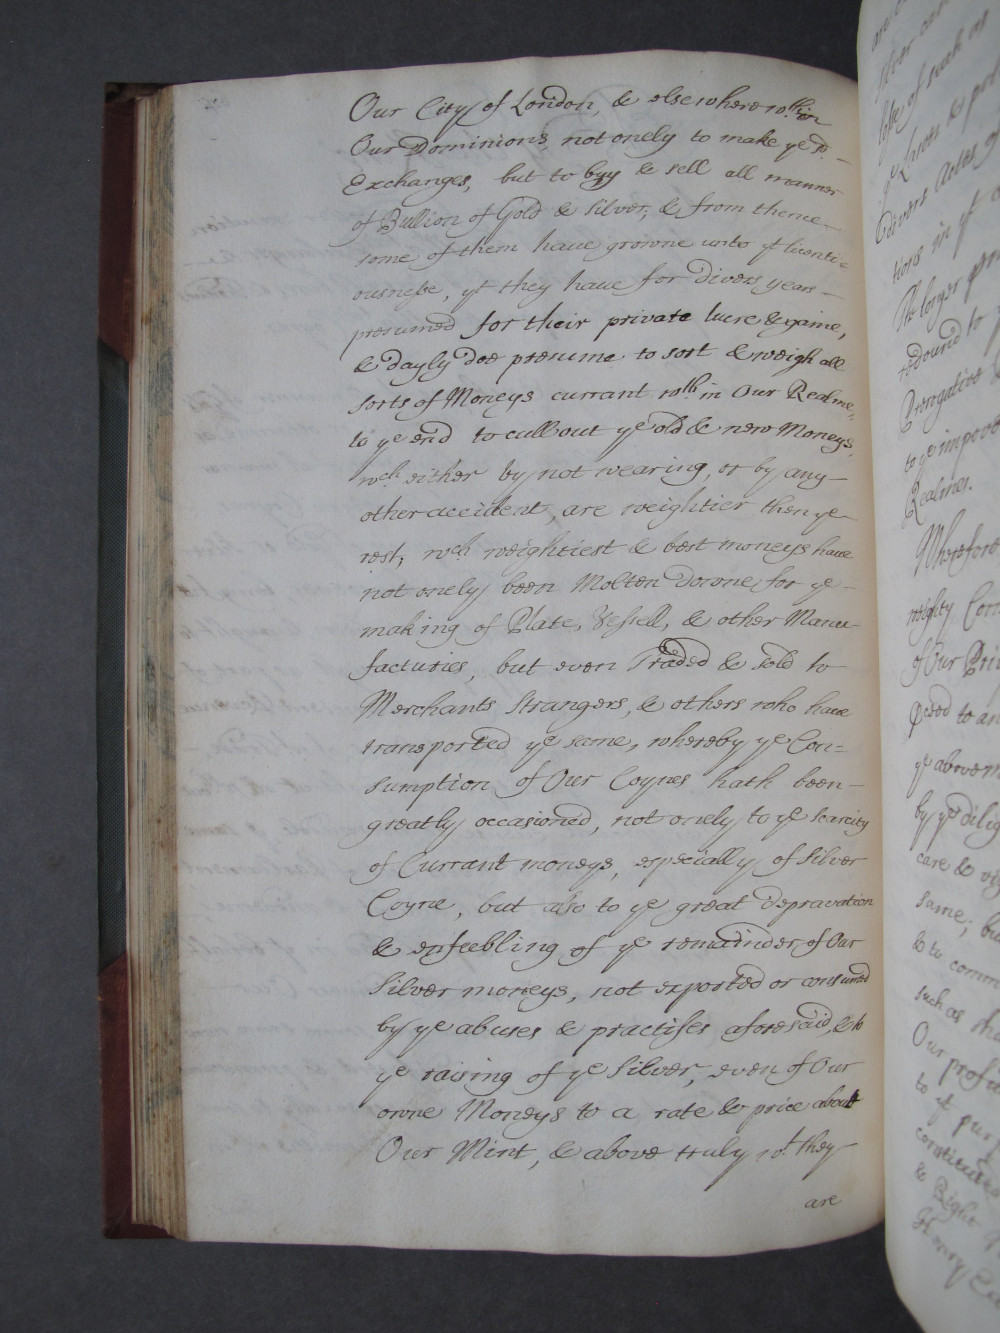 Our City of London, & elsewhere wthin
Our Dominions, not onely to make ye sd.
Exchanges, but to byy & sell all manner
of Bullion of Gold & Silver; & from thence
some of them have growne unto yt licenti=
ousnesse, yt they have for divers years
presumed for their private lucre & gaine,
& dayly doe presume to sort & weigh all
sorts of Moneys currant wthin Our Realme,
to ye end to cull out ye old & new Moneys,
wch either by not wearing, or by any
other accident, are weightier then ye
rest; wch weightiest & best moneys have
not onely been Molten downe for ye
making of Plate, Vessell, & other Manu=
facturies, but even Traded & sold to
Merchants Strangers, & others who have
transported ye same, whereby ye Con=
sumption of Our Coynes hath been
greatly occasioned, not onely to ye scarcity
of Currant moneys, especially of Silver
Coyne, but also to ye great depravation
& enfeebling of ye remainder, of Our
Silver moneys, not exported or consumed
by ye abuses & practises aforesaid, & to
ye raising of ye Silver, even of Our
owne Moneys to a rate & price above
Our Mint, & above truly wt. they
are
Silver
losse of such
ye Lawes &
Divers Actes
tions in yt
The longer
redound to
Prerogative &
to ye impov
Realmes.
Wherefore
of Our Priv
to an
ye abovem
by ye dilig
care & vig
same; bu
& to comm
such as sha
Our profi
to yt pur
constitute
& Right
Henry